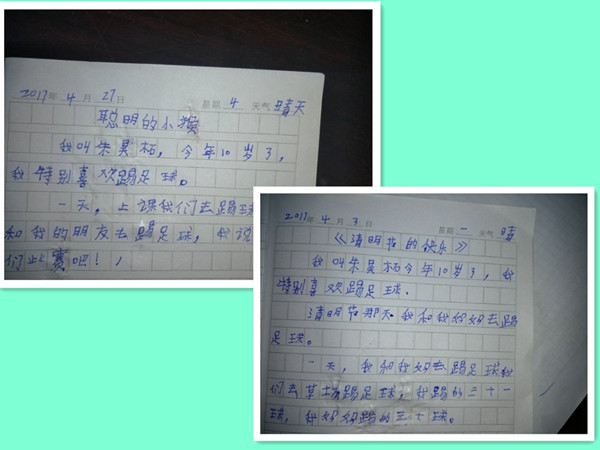 2017年 4月 27日 星期 4 天气 晴天
聪明的小猴
我叫朱昊柘，今年10岁了，
我特别喜欢踢足球。
一天，上课我们去踢球
和我的朋友去踢足球，我说
们比赛吧！
2017年 4月 3日 星期 一 天气 晴
《清明节的快乐》
我叫朱昊柘今年10岁了，我
特别喜欢踢足球．
清明节那天我和我妈妈去踢
足球。
一天，我和我妈去踢足球我
们去草场踢足球，我踢的三十一
球，我妈妈踢的三十球。